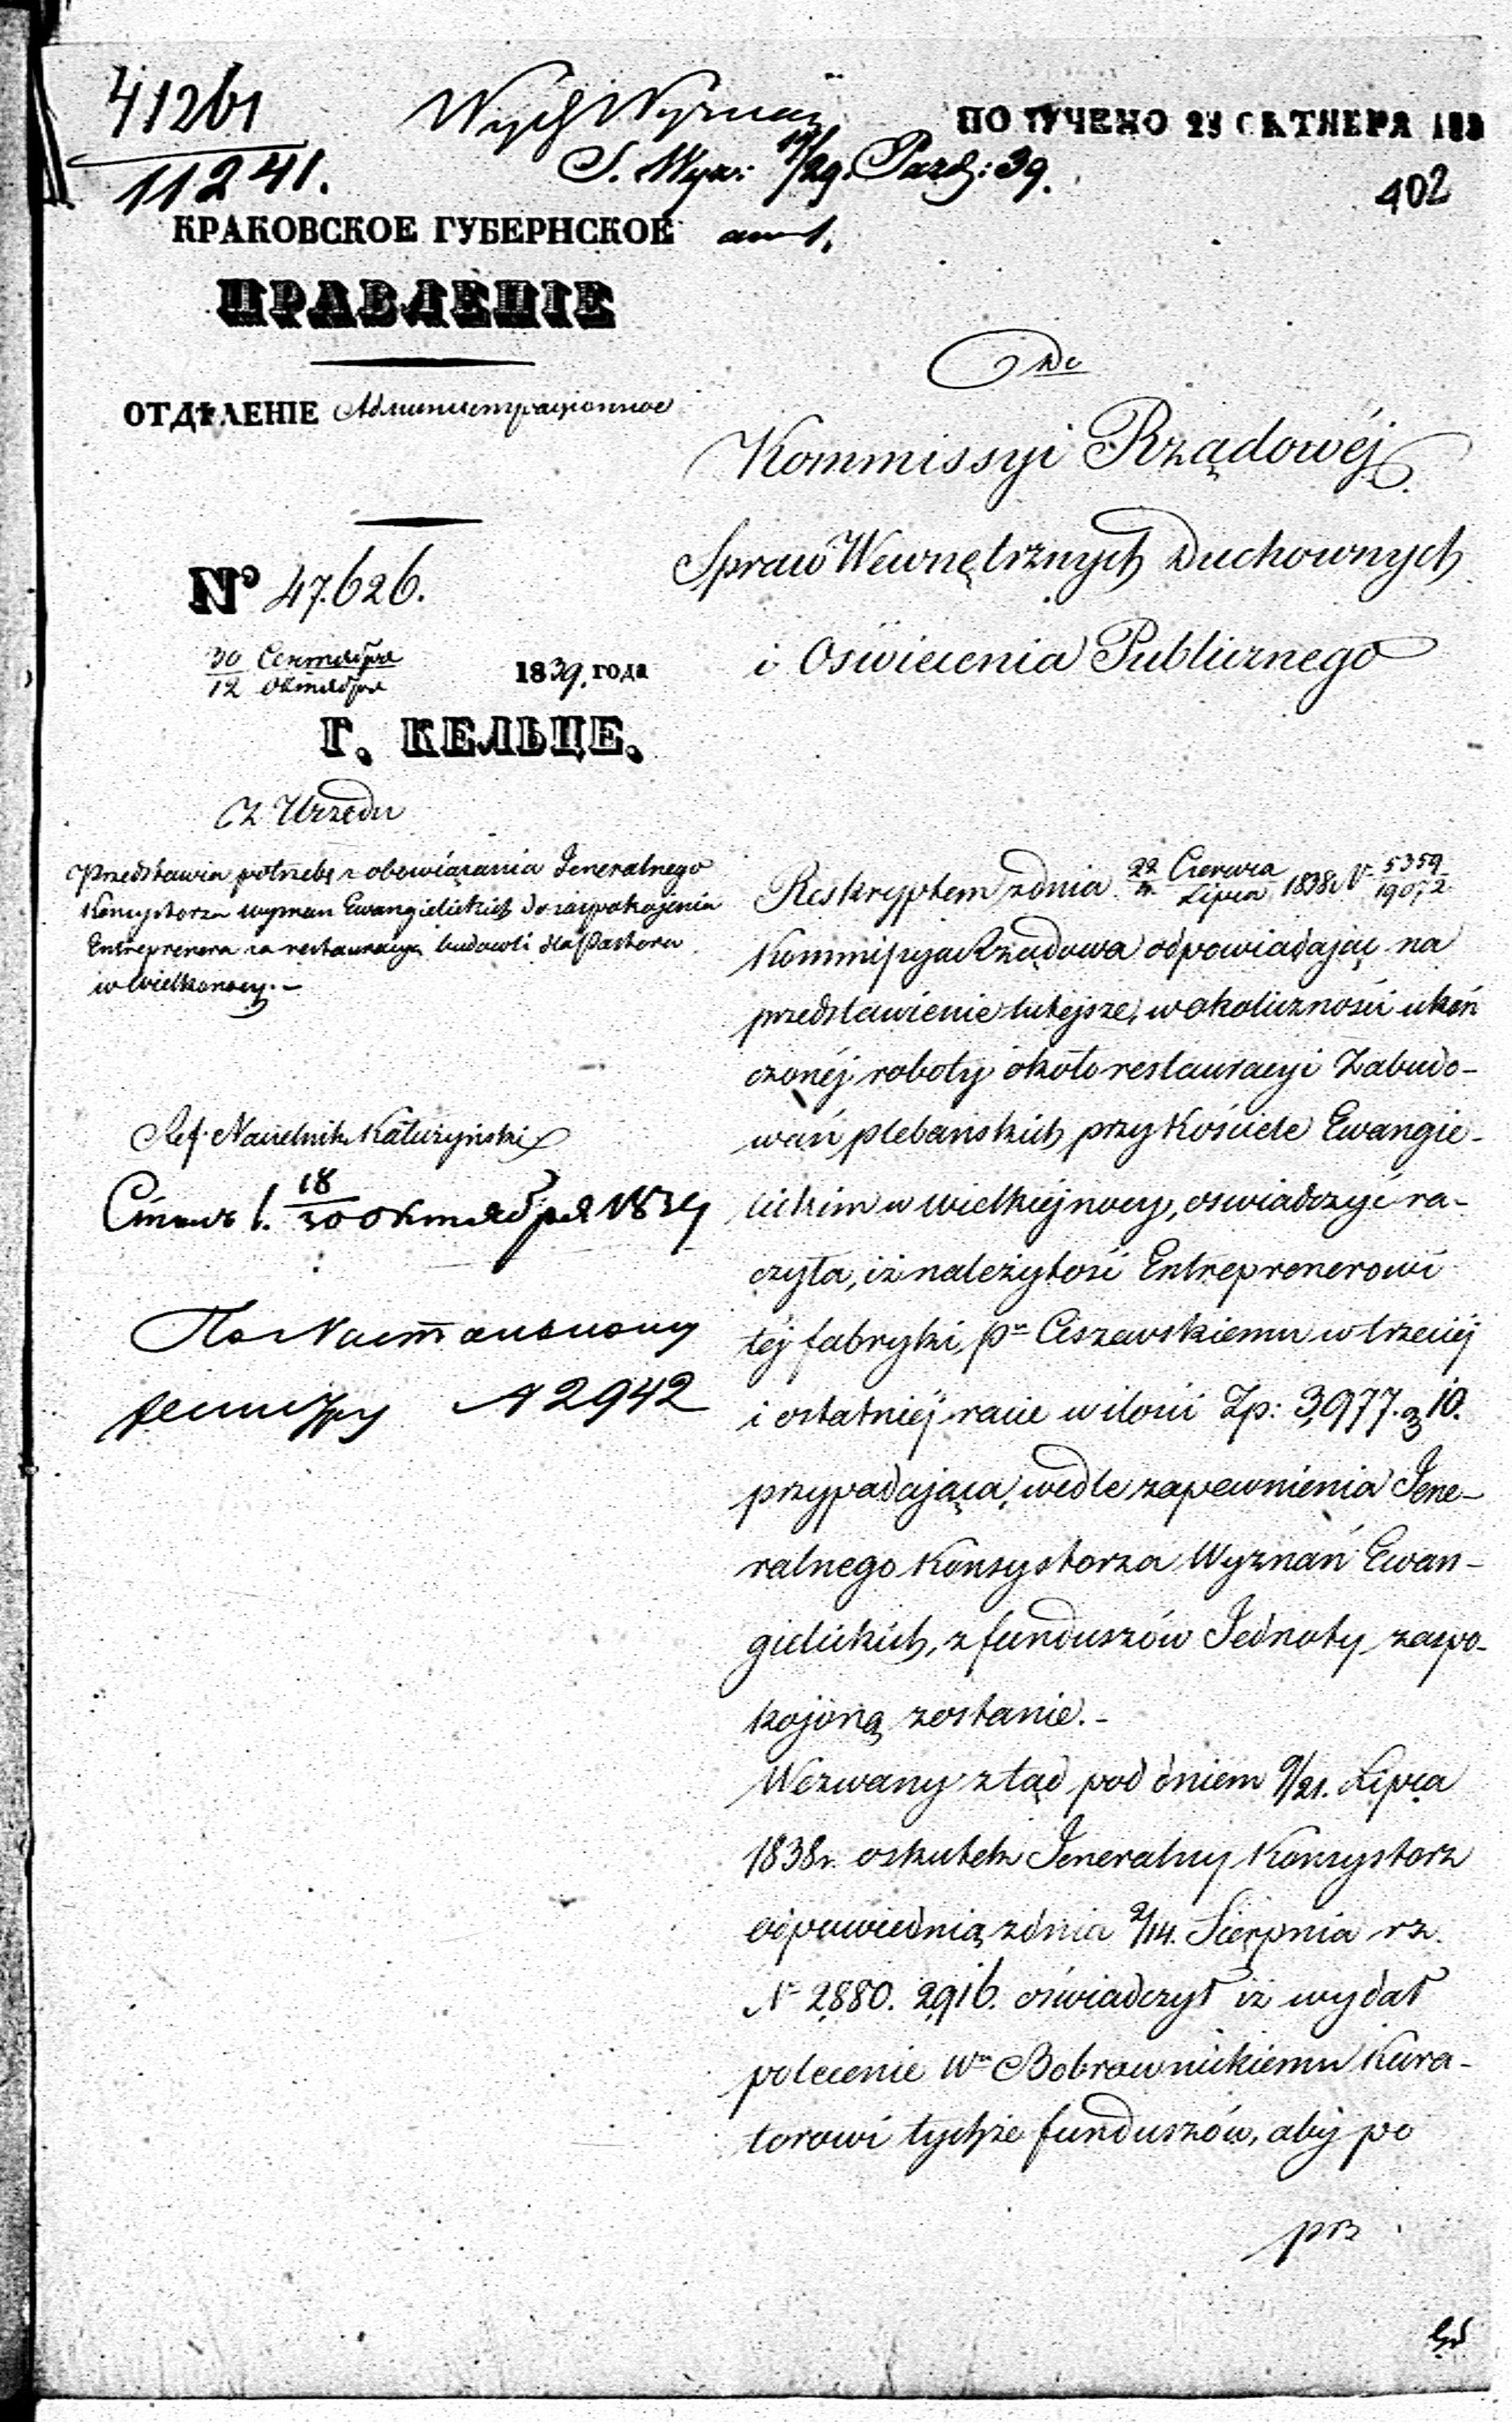 41261
11241.
Wydz Wyznań
S. Wyz: 17/29. Pazdz: 39.
ПОЛУЧЕНО 29 ОКТЯБРЯ 183
402
КРАКОВСКОЕ ГУБЕРНСКОЕ
ПРАВЛЕНІЕ
ОТДѢЛЕНІЕ Административное
№ 47.626.
30 Сентября
12 Октября
1839. года
Г. КЕЛЬЦЕ.
Z Urzędu
Przedstawia potrzebę zobowiązania Jeneralnego
Konsystorza wyznan Ewangielickich do zaspokojenia
Entreprenera za restauracyą budowli dla Pastora
w Wielkanocy.–
Ref. Naczelnik Kałużyński
18
30 Октября 1839
№ 2942
Do
Kommissyi Rządowéj
Spraw Wewnętrznych Duchownych
i Oświecenia Publicznego
Reskryptem z dnia 22 Czerwca / Lipca 1838 r. Nr 5359 / 19072
Kommissyja Rządowa odpowiadając na
przedstawienie tutejsze, w okoliczności ukoń
czonéj roboty około restauracyi Zabudo-
wań plebańskich przy Kościele Ewangie-
lickim w Wielkiéjnocy, oświadczyć ra-
czyła, iż należytość Entreprenerowi
téj fabryki, Pu Ciszewskiemu w trzeciéj
i ostatniéj racie w ilości Zp: 3,977. g 10.
przypadająca, wedle zapewnienia Jene-
ralnego Konsystorza Wyznań Ewan-
gielickich, z funduszów Jednoty zaspo-
kojoną zostanie.–
Wezwany ztąd pod dniem 9/21. Lipca
1838 r. o skutek Jeneralny Konsystorz
odpowiednią z dnia 2/14. Sierpnia rz.
Nr 2,880. 2,916. oświadczył iż wydał
polecenie Wu Bobrownickiemu Kura-
torowi tychże funduszów, aby po
prz